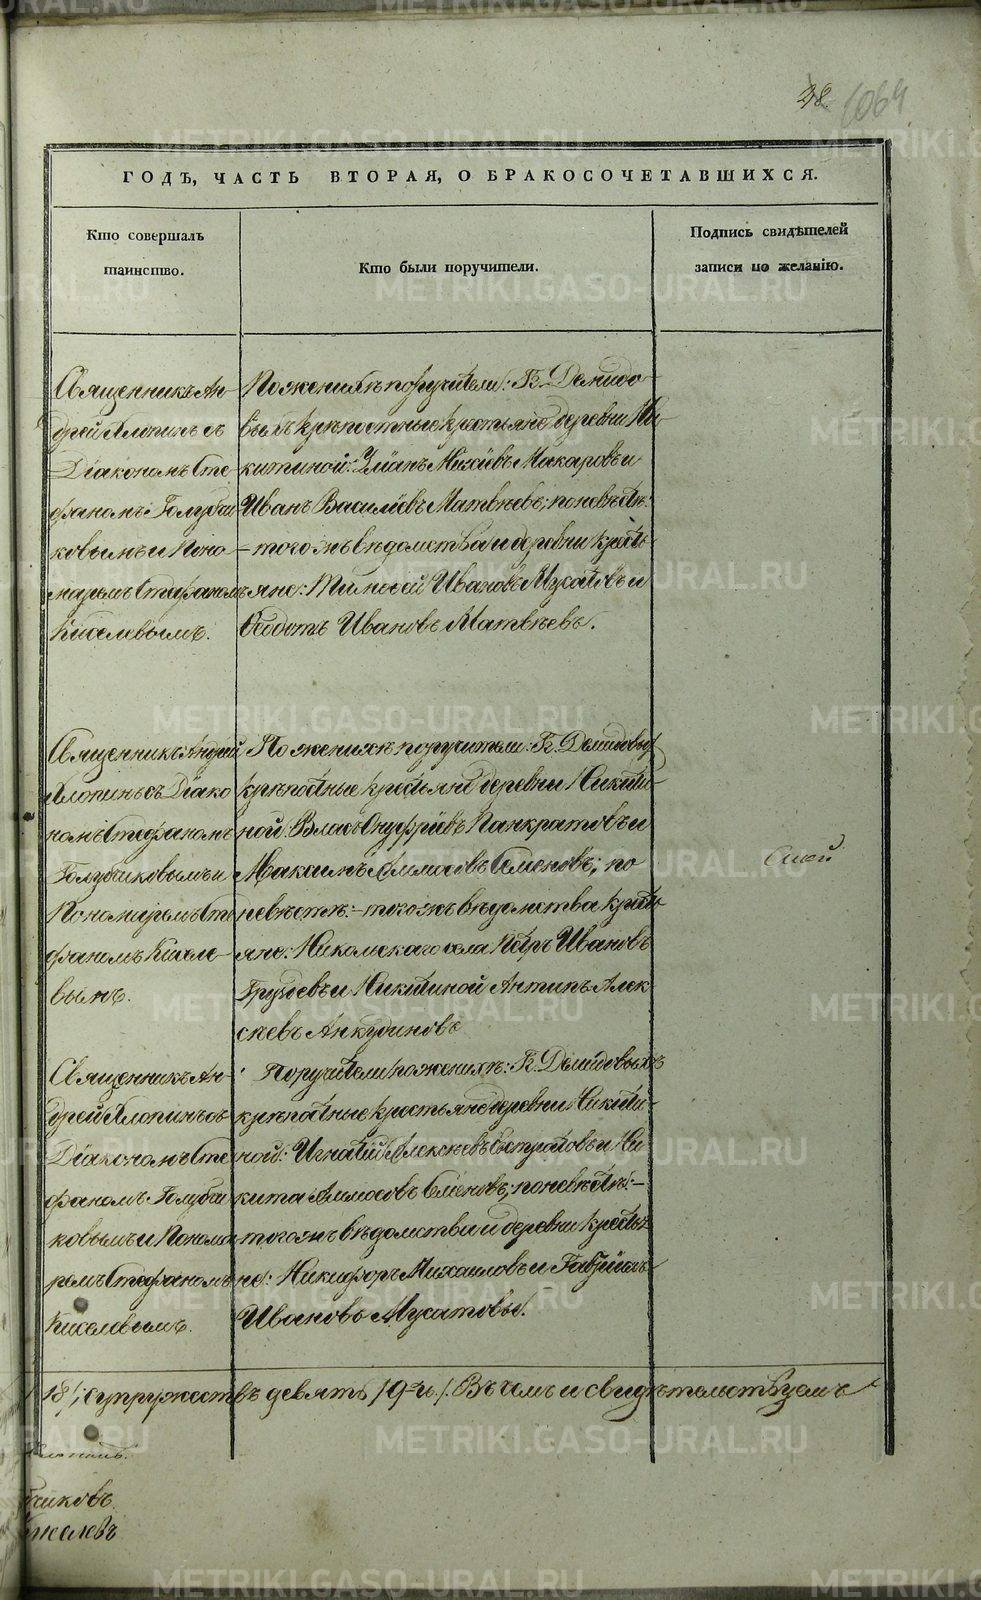 28. 1064
ГОДЪ, ЧАСТЬ ВТОРАЯ, О БРАКОСОЧЕТАВШИХСЯ.
Кто совершалъ
таинство.
Кто были поручители.
Подпись свидѣтелей
записи по желанію.
Священникъ Ан-
дрей Хлопинъ съ
Діакономъ Сте
фаномъ Голубчи
ковымъ и Поно-
маремъ Стефаномъ
Киселевымъ.
По женихѣ поручители: Г. Демидо
выхъ крѣпостные крестьяне деревни Ни
китиной: Уліанъ Михѣевъ Макаровъ и
Иванъ Василіевъ Матвѣевъ; по невѣстѣ:
– тогожъ вѣдомства и деревни кресть
яне: Тимоѳей Ивановъ Мусатовъ и
Ѳедотъ Ивановъ Матвѣевъ.
Священникъ Андрей
Хлопинъ съ Діако
номъ Стефаномъ
Голубчиковымъ и
Пономаремъ Сте
фаномъ Кисле-
вымъ.
По женихѣ поручители: Г. Демидовыхъ
крѣпостные крестьяне деревни Никити-
ной: Власъ Онуфріевъ Панкратовъ и
Максимъ Аммосовъ Семеновъ; по
невѣстѣ: – тогожъ вѣдомства кресть
яне: Никольскаго села Петръ Ивановъ
Груздевъ и Никитиной Антипъ Алек
сѣевъ Анкудиновъ
Священникъ Ан-
дрей Хлопинъ съ
Діакономъ Сте
фаномъ Голубчи
ковымъ и Понома
ремъ Стефаномъ
Киселевымъ.
Поручители по женихѣ: Г. Демидовыхъ
крѣпостные крестьяне деревни Никити-
ной: Игнатій Алексѣевъ и Ни
кита Аммосовъ Семеновъ; по невѣстѣ: –
тогожъ вѣдомства и деревни крестья
не: Никифоръ Михаиловъ и Гавріилъ
Ивановъ Мусатовы.
18/; супружествъ девять /9-ть/. Въ чемъ и свидѣтельствуемъ
Хлопинъ.
бчиковъ.
иселевъ
METRIKI.GASO-URAL.RU